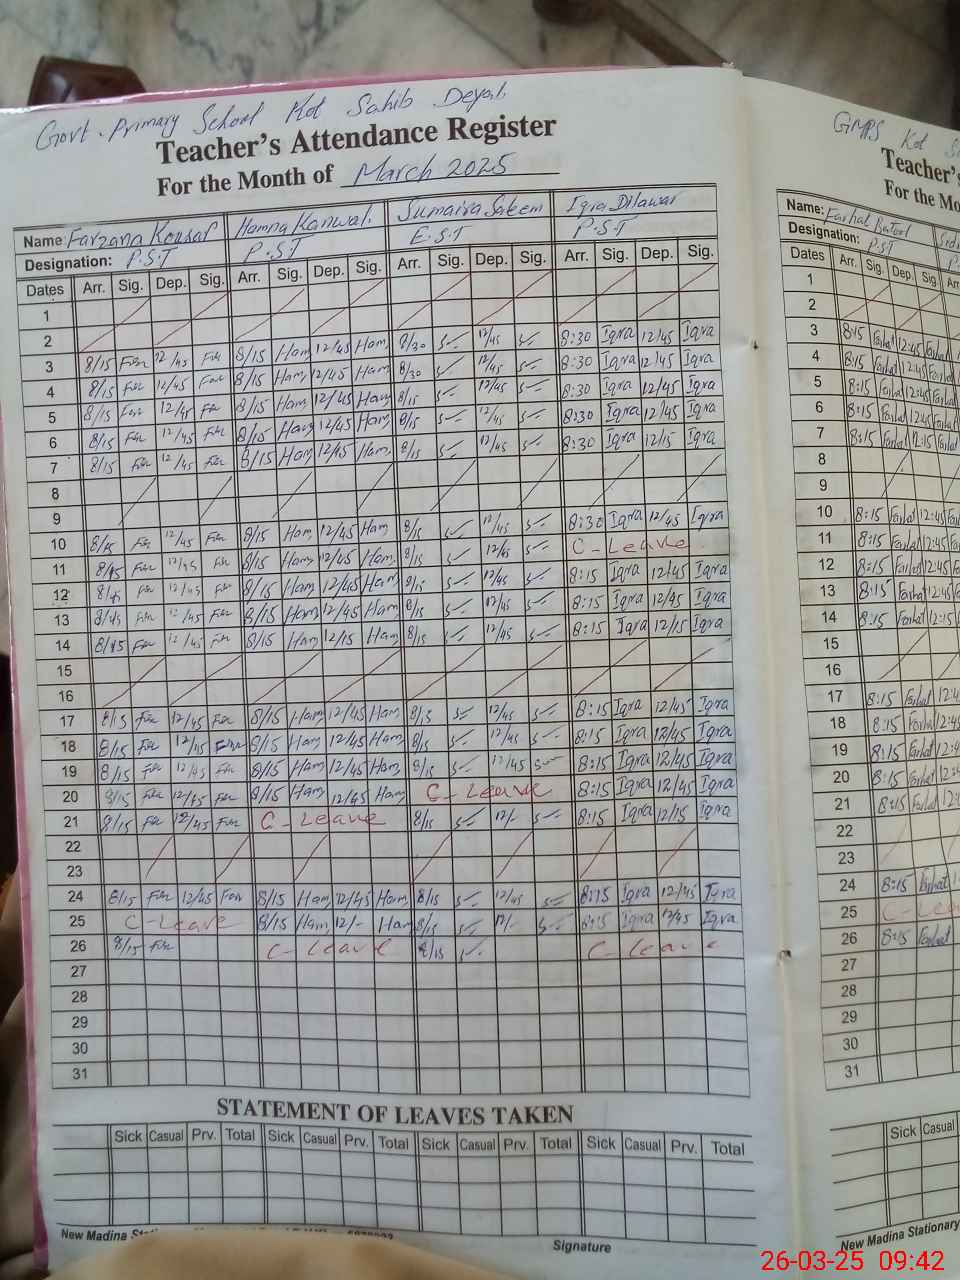 Govt. Primary School Kot Sahib Deyal.
Teacher's Attendance Register
For the Month of March 2025
Name: Farzana Kousar Hamna Kanwal. Sumaira Saleem Iqra Dilawar
Designation: P.S.T P.S.T E.S.T P.S.T
Dates Arr. Sig. Dep. Sig. Arr. Sig. Dep. Sig. Arr. Sig. Dep. Sig. Arr. Sig. Dep. Sig.
1
2
3 8/15 Far 12/45 Far 8/15 Ham 12/45 Ham 8/30 12/45 8:30 Iqra 12/45 Iqra
4 8/15 Far 12/45 Far 8/15 Ham 12/45 Ham 8/30 12/45 8:30 Iqra 12/45 Iqra
5 8/15 Far 12/45 Far 8/15 Ham 12/45 Ham 8/15 12/45 8:30 Iqra 12/45 Iqra
6 8/15 Far 12/45 Far 8/15 Ham 12/45 Ham 8/15 12/45 8:30 Iqra 12/45 Iqra
7 8/15 Far 12/45 Far 8/15 Ham 12/45 Ham 8/15 12/45 8:30 Iqra 12/15 Iqra
8
9
10 8/15 Far 12/45 Far 8/15 Ham 12/45 Ham 8/15 12/45 8:30 Iqra 12/45 Iqra
11 8/45 Far 12/45 Far 8/15 Ham 12/45 Ham 8/15 12/45 C-Leave
12 8/45 Far 12/45 Far 8/15 Ham 12/45 Ham 8/15 12/45 8:15 Iqra 12/45 Iqra
13 8/45 Far 12/45 Far 8/15 Ham 12/45 Ham 8/15 12/45 8:15 Iqra 12/45 Iqra
14 8/15 Far 12/45 Far 8/15 Ham 12/15 Ham 8/15 12/45 8:15 Iqra 12/15 Iqra
15
16
17 8/15 Far 12/45 Far 8/15 Ham 12/45 Ham 8/15 12/45 8:15 Iqra 12/45 Iqra
18 8/15 Far 12/45 Far 8/15 Ham 12/45 Ham 8/15 12/45 8:15 Iqra 12/45 Iqra
19 8/15 Far 12/45 Far 8/15 Ham 12/45 Ham 8/15 12/45 8:15 Iqra 12/45 Iqra
20 8/15 Far 12/45 Far 8/15 Ham 12/45 Ham C-Leave 8:15 Iqra 12/45 Iqra
21 8/15 Far 12/45 Far C-Leave 8/15 12/- 8:15 Iqra 12/15 Iqra
22
23
24 8/15 Far 12/45 Far 8/15 Ham 12/45 Ham 8/15 12/45 8:15 Iqra 12/45 Iqra
25 C-Leave 8/15 Ham 12/- Ham 8/15 12/- 8:15 Iqra 12/45 Iqra
26 8/15 Far C-Leave 8/15 C-Leave
27
28
29
30
31
STATEMENT OF LEAVES TAKEN
Sick Casual Prv. Total Sick Casual Prv. Total Sick Casual Prv. Total Sick Casual Prv. Total
New Madina
Signature
GMPS Kot
Teacher's
For the Mo
Name: Farhat Batool
Designation: P.S.T
Dates Arr. Sig. Dep. Sig
1
2
3 8:15 Farhat 12:45 Farhat
4 8:15 Farhat 12:45 Farhat
5 8:15 Farhat 12:45 Farhat
6 8:15 Farhat 12:45 Farhat
7 8:15 Farhat 12:15 Farhat
8
9
10 8:15 Farhat 12:45
11 8:15 Farhat 12:45
12 8:15 Farhat 12:45
13 8:15 Farhat 12:45
14 8:15 Farhat 12:15
15
16
17 8:15 Farhat 12:4
18 8:15 Farhat 12:4
19 8:15 Farhat 12:4
20 8:15 Farhat 12:4
21 8:15 Farhat 12:4
22
23
24 8:15 Farhat 12:4
25 C-Lea
26 8:15 Farhat
27
28
29
30
31
Sick Casual
New Madina Stationary
26-03-25 09:42